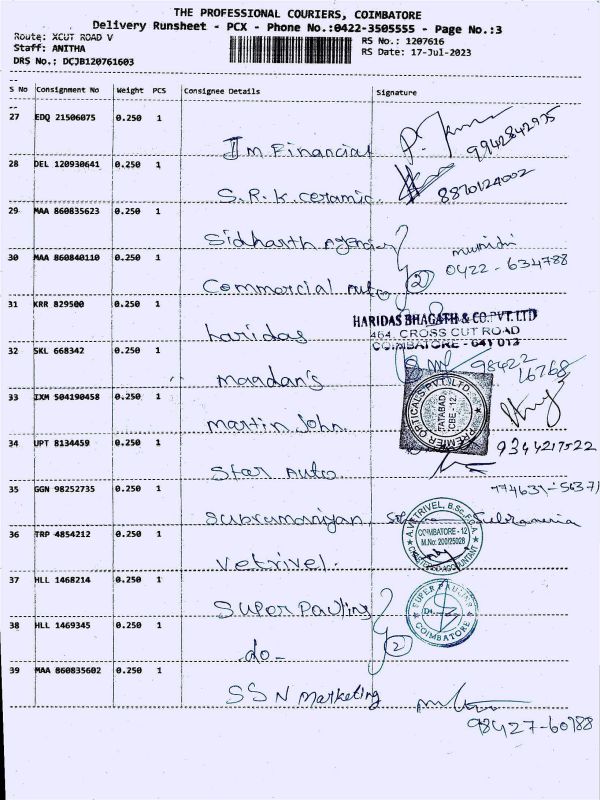 THE PROFESSIONAL COURIERS, COIMBATORE
Delivery Runsheet - PCX - Phone No.:0422-3505555 - Page No.:3
Route: XCUT ROAD V
RS No.: 1207616
Staff: ANITHA
RS Date: 17-Jul-2023
DRS No.: DCJB120761603
S No Consignment No Weight PCS Consignee Details Signature
27 EDQ 21506075 0.250 1
Jm Financial 9942842935
28 DEL 120930641 0.250 1
S.R.K. ceramic. 8870124002
29 MAA 860835623 0.250 1
Sidharth Agencies
30 MAA 860840110 0.250 1
0422-634788
Commercial Auto 2
31 KRR 829500 0.250 1
HARIDAS BHAGATH & CO.PVT.LTD
464, CROSS CUT ROAD
COIMBATORE - 641 012
haridas
32 SKL 668342 0.250 1
98422
16768
maadan's
33 IXM 504190458 0.250 1
PREMIER OPTICALS PVT. LTD.
TATABAD,
CBE - 12.
martin John.
34 UPT 8134459 0.250 1
9344217522
Star Auto
35 GGN 98252735 0.250 1
Subramaniyan.
36 TRP 4854212 0.250 1
A. VETRIVEL, B.Sc., F.C.A.
COIMBATORE - 12
M.No: 200/25028
CHARTERED ACCOUNTANT
Vetrivel.
37 HLL 1468214 0.250 1
Super Pauling
COIMBATORE
38 HLL 1469345 0.250 1
2
-do-
39 MAA 860835602 0.250 1
SSN Marketing
98427-60788